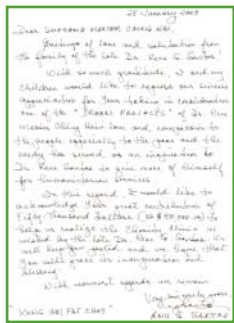 25 January 2009
Dear SUPREME MASTER CHING HAI,
Greetings of Love and satisfaction from
the family of the late Dr. Rene G. Santos
With so much gratitude, I and my
children would like to express our sincere
appreciation for Your taking in consideration
one of the "PROJECTS" of Dr. Rene
Ching Hai's love and compassion to
the people especially to the poor and the
needy has served as an inspiration to
Dr. Rene Santos to give more of himself
for humanitarian services.
In this regard, I would like to
acknowledge Your great contribution of
Fifty Thousand Dollars (US $50,000.00) to
help us realize the Charity Clinic as
by the late Dr. Rene G. Santos. We
will keep You and we hope that
You will grace its inauguration and
blessing.
With warmest regards we remain
Very sincerely yours
SANTOS